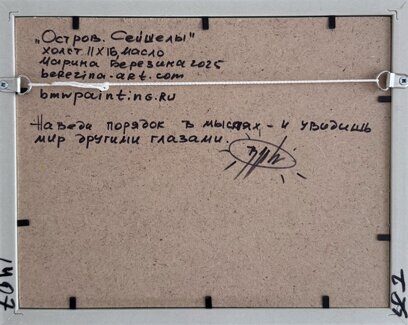 „Остров. Сейшелы"
холст 11х16 масло
Марина Березина 2025
berezina-art.com
bmwpainting.ru
Наведи порядок в мыслях - и увидишь
мир другими глазами.